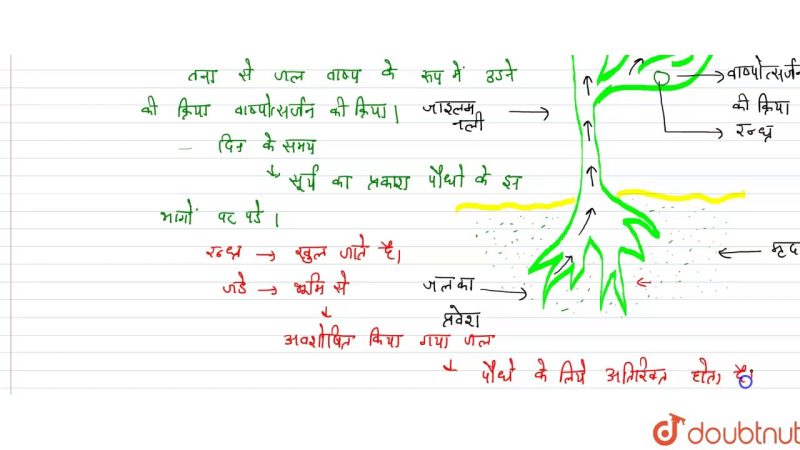 तना से जल वाष्प के रूप में उडने
की क्रिया वाष्पोत्सर्जन की क्रिया।
दिन के समय
सूर्य का प्रकाश पौधो के इन
भागों पर पडे।
रन्ध्र → खुल जाते है।
जडे → भूमि से
अवशोषित किया गया जल
पौधो के लिये अतिरिक्त होता है।
जाइलम
नली
वाष्पोत्सर्जन
की क्रिया
रन्ध्र
मृदा
जल का
प्रवेश
doubtnut